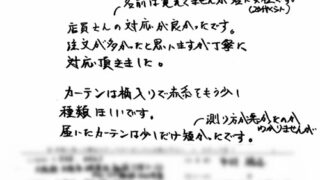 名前は覚えてませんが
店員さんの対応が良かったです。
注文が多かったと思いますが丁寧に
対応頂きました。
カーテンは柄入りで赤系をもう少し
種類ほしいです。
測り方が悪かったのか
わかりませんが
届いたカーテンは少しだけ短かったです。